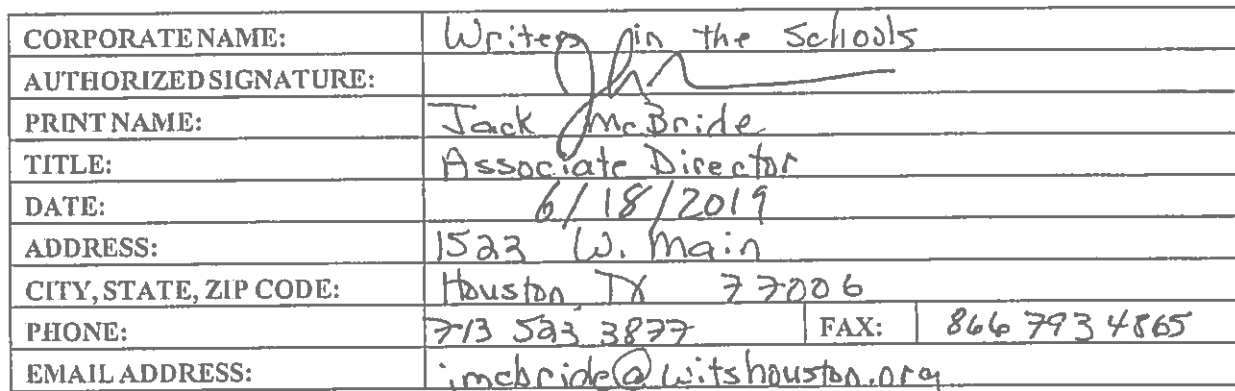 CORPORATE NAME: Writers in the Schools
AUTHORIZED SIGNATURE:
PRINT NAME: Jack McBride
TITLE: Associate Director
DATE: 6/18/2019
ADDRESS: 1523 W. Main
CITY, STATE, ZIP CODE: Houston TX 77006
PHONE: 713 523 3877 FAX: 866 793 4865
EMAIL ADDRESS: jmcbride@witshouston.org